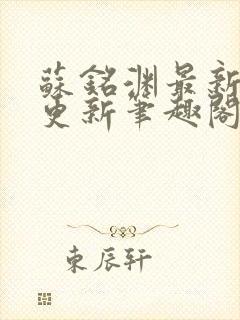 蘇銘淵最新
更新筆趣閣
東辰轩